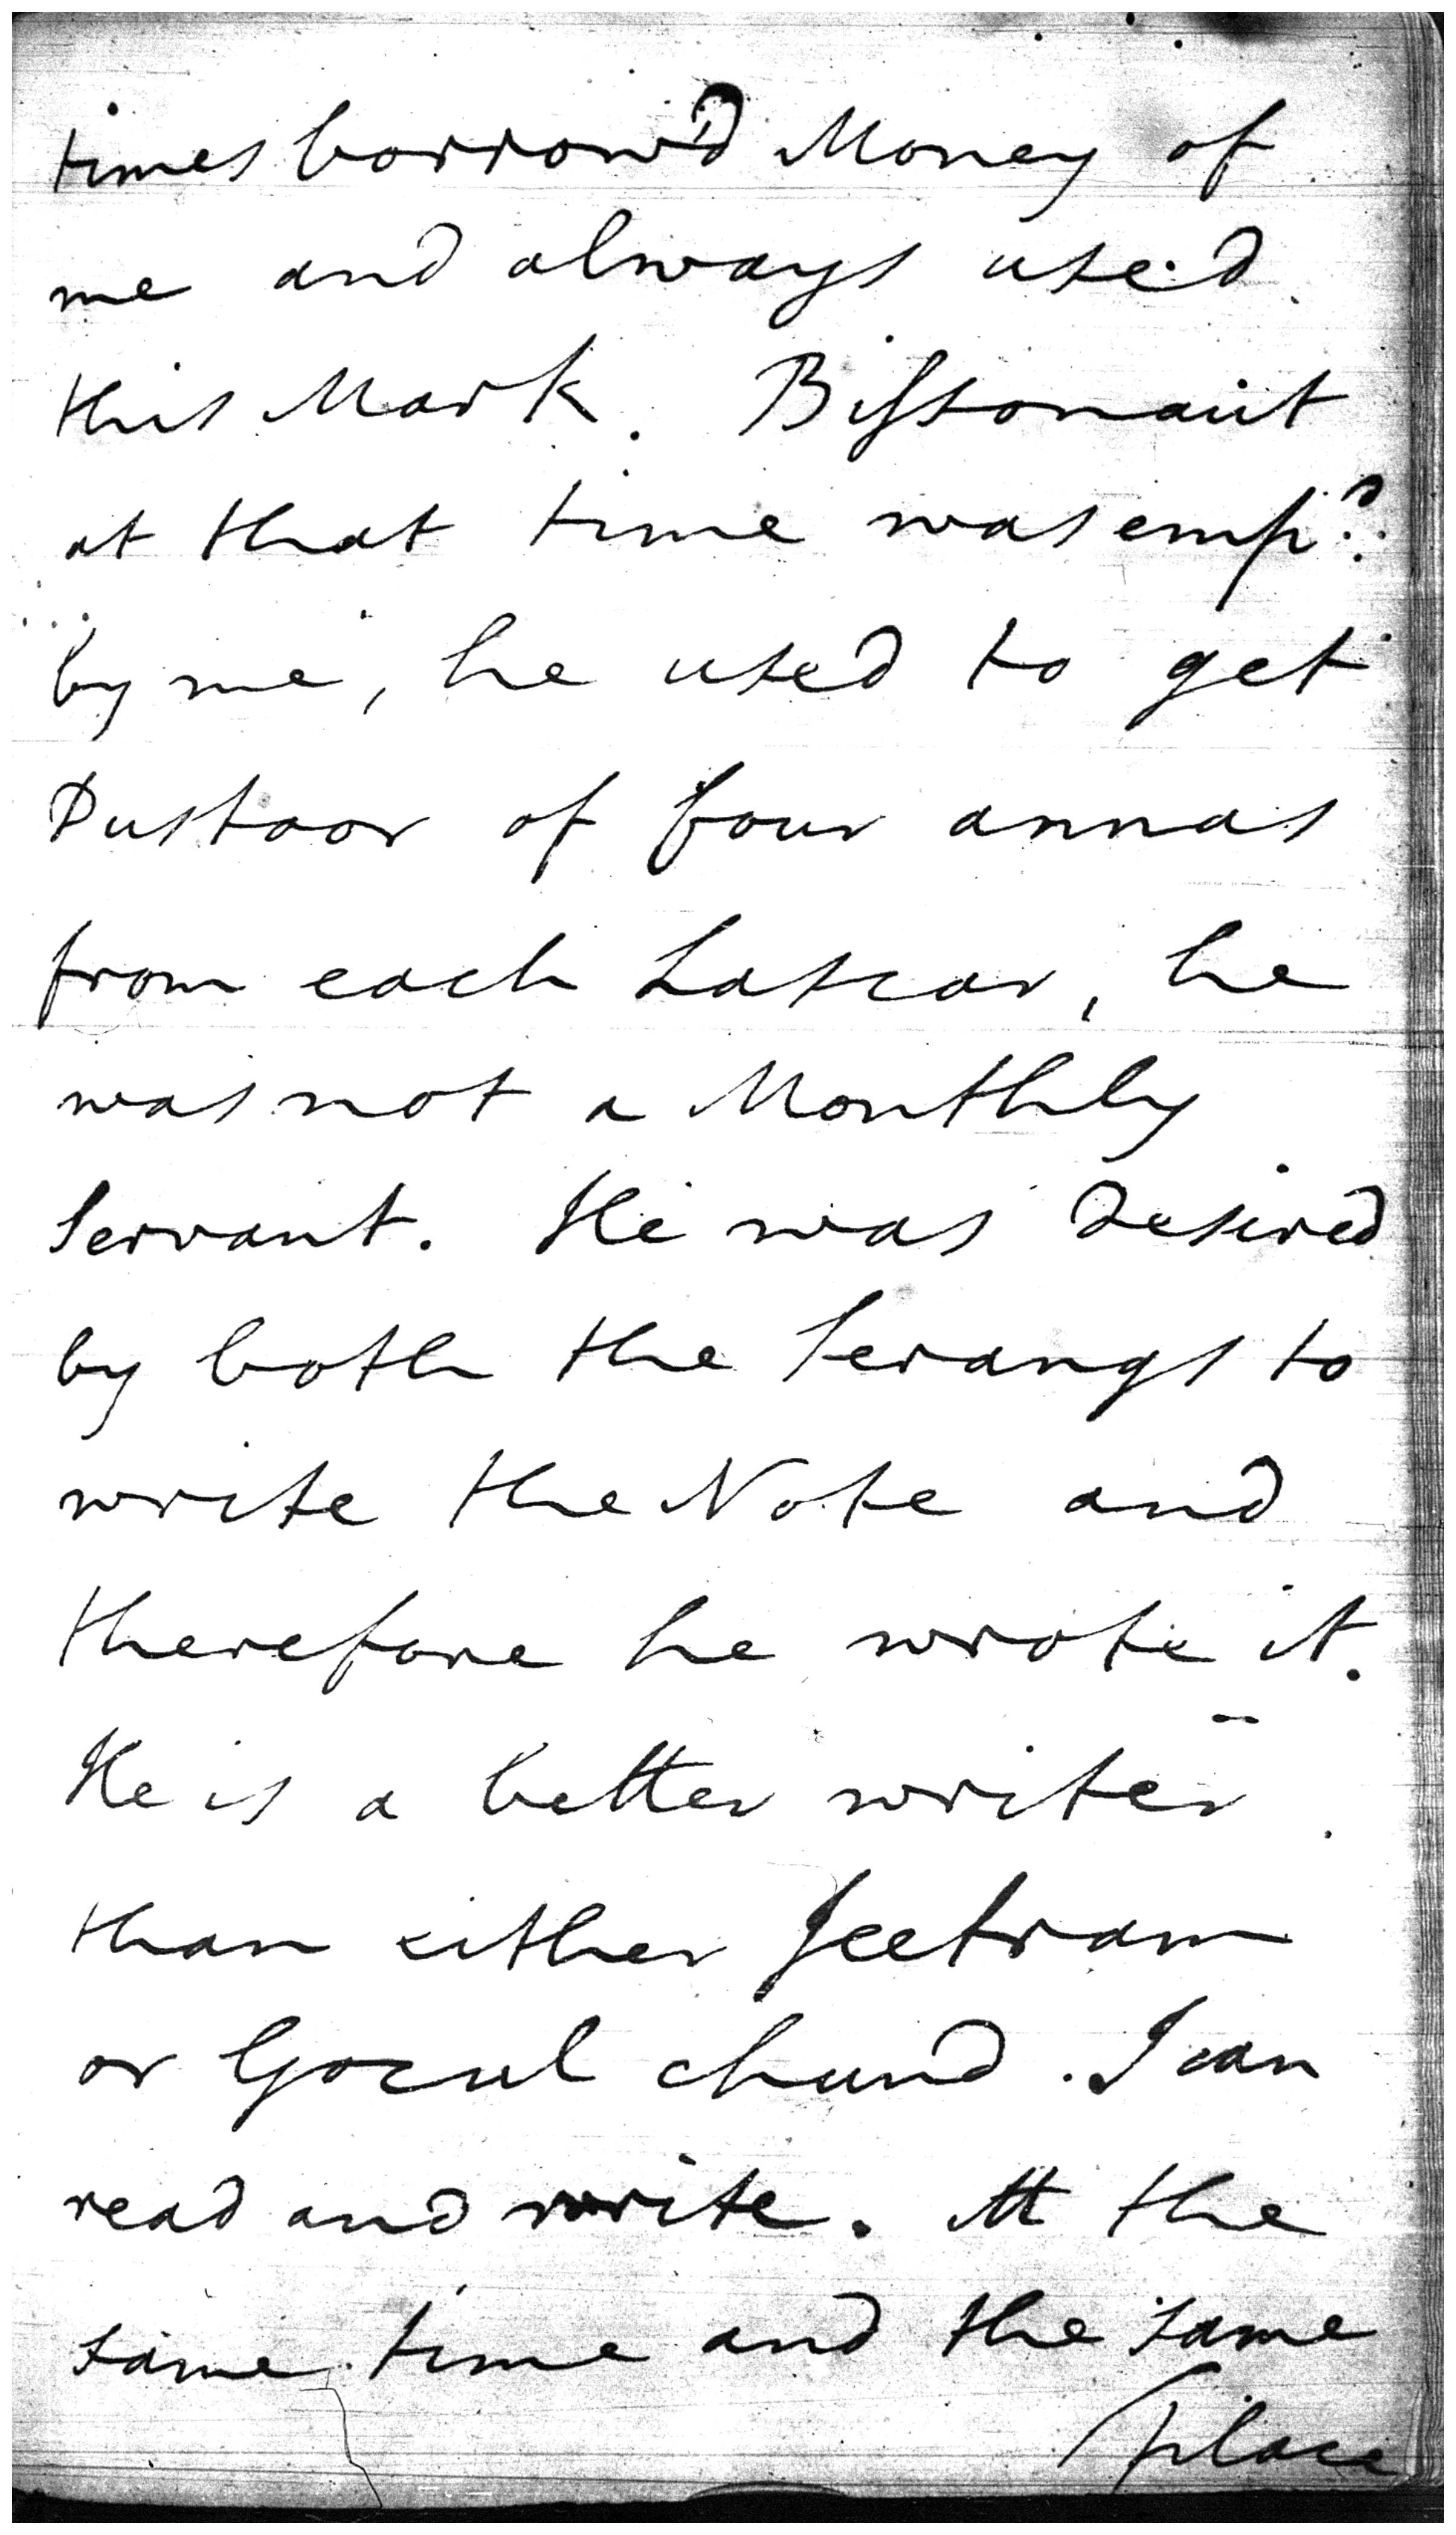 times borrow'd Money of
me and always used
this Mark. Bissonaut
at that time was emp.d
by me, he used to get
Dustoor of four annas
from each Lascar, he
was not a Monthly
Servant. He was desired
by both the Serangs to
write the Note and
therefore he wrote it.
He is a better writer
than either Jeetram
or Gocul chund. I can
read and write. At the
same time and the same
place